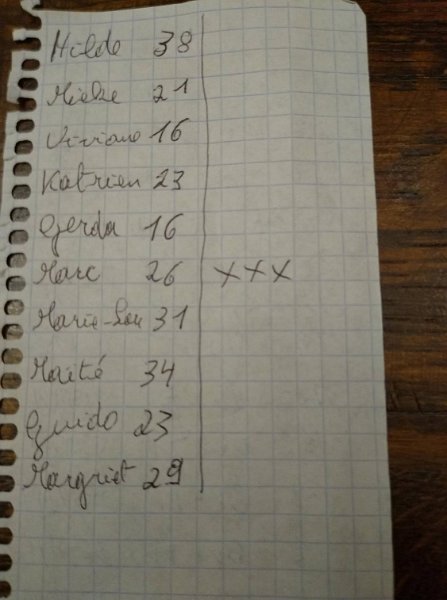 Hilde 38
Mieke 21
Viviane 16
Katrien 23
Gerda 16
Marc 26 XXX
Marie-Lou 31
Maité 34
Guido 23
Margriet 29